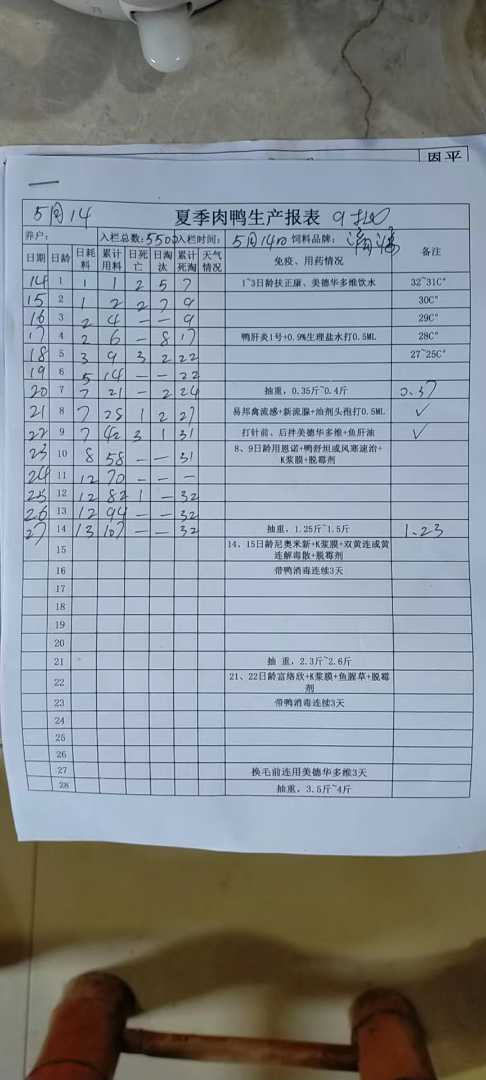 恩平
5月14 夏季肉鸭生产报表
养户: 入栏总数:5500 入栏时间: 5月14 饲料品牌:
日期 日龄 日耗料 累计用料 日死亡 日淘汰 累计死淘 天气情况 免疫、用药情况 备注
14 1 1 1 2 5 7 1~3日龄扶正康、美德华多维饮水 32~31C°
15 2 1 2 2 7 9 30C°
16 3 2 4 — — 9 29C°
17 4 2 6 — 8 17 鸭肝炎1号+0.9%生理盐水打0.5ML 28C°
18 5 3 9 3 2 22 27~25C°
19 6 5 14 — — 22
20 7 7 21 — 2 24 抽重，0.35斤~0.4斤 0.37
21 8 7 28 1 2 27 易邦禽流感+新流腺+油剂头孢打0.5ML ✓
22 9 7 42 3 1 31 打针前、后拌美德华多维+鱼肝油 ✓
23 10 8 58 — — 31 8、9日龄用恩诺+鸭舒坦或风寒速治+K浆膜+脱霉剂
24 11 12 70 — — —
25 12 12 82 1 — 32
26 13 12 94 — — 32
27 14 13 107 — — 32 抽重，1.25斤~1.5斤 1.23
15 14、15日龄尼奥米新+K浆膜+双黄连或黄连解毒散+脱霉剂
16 带鸭消毒连续3天
17
18
19
20
21 抽 重，2.3斤~2.6斤
22 21、22日龄富络欣+K浆膜+鱼腥草+脱霉剂
23 带鸭消毒连续3天
24
25
26
27 换毛前连用美德华多维3天
28 抽重，3.5斤~4斤